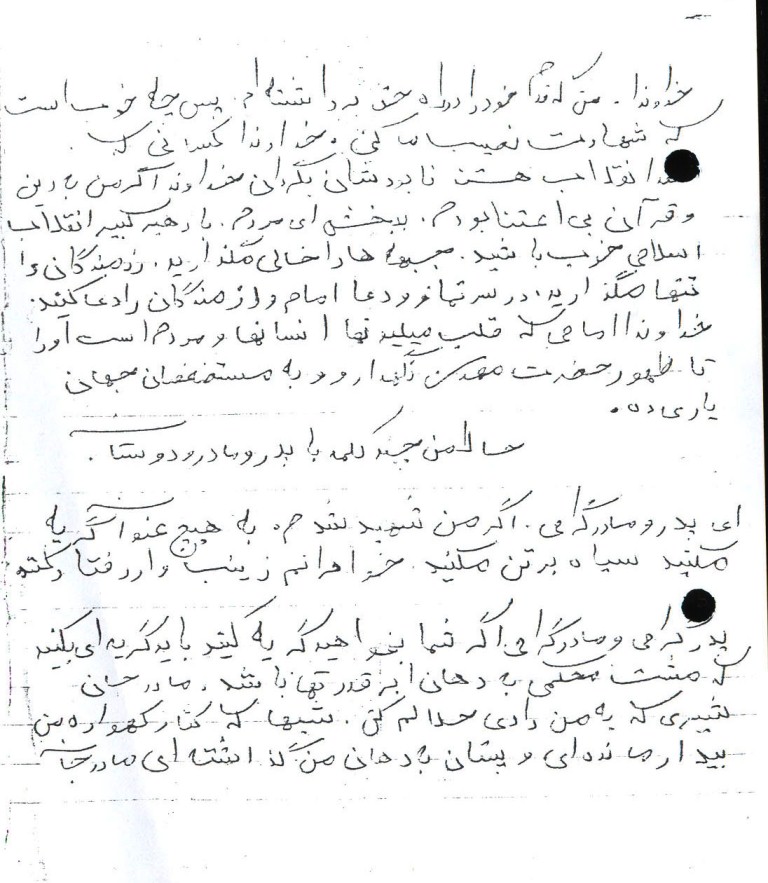 خداوندا. من که قدم خود را در راه حق برداشته‌ام. پس چه خوب است
که شهادت نصیب ما کنی. خداوندا کسانی که
انقلاب هستن نابودشان بگردان خداوند اگر من به دین
و قرآن بی اعتنا بودم. ببخش ای مردم. با رهبر کبیر انقلاب
اسلامی خوب باشید. جبهه ها را خالی مگذارید. رزمندگان را
تنها مگذارید. در سر نماز و دعا امام و رزمندگان را دعا کنید.
خداوندا امامی که قلب میلیونها انسانها و مردم است او را
تا ظهور حضرت مهدی نگهدار و به مستضعفان جهان
یاری ده.
حالا من چند کلمه با پدر و مادر و دوستان.
ای پدر و مادر گرامی. اگر من شهید شدم. به هیچ عنوان گریه
مکنید سیاه بر تن مکنید. خواهرانم زینب وار رفتار کنند
پدر گرامی و مادر گرامی اگر شما بخواهید گریه کنید باید گریه ای بکنید
که مشت محکمی به دهان ابر قدرتها باشد. مادر جان
شیری که به من دادی حلالم کن. شبها که کنار گهواره من
بیدار مانده ای و پستان به دهان من گذاشته ای مادر جان